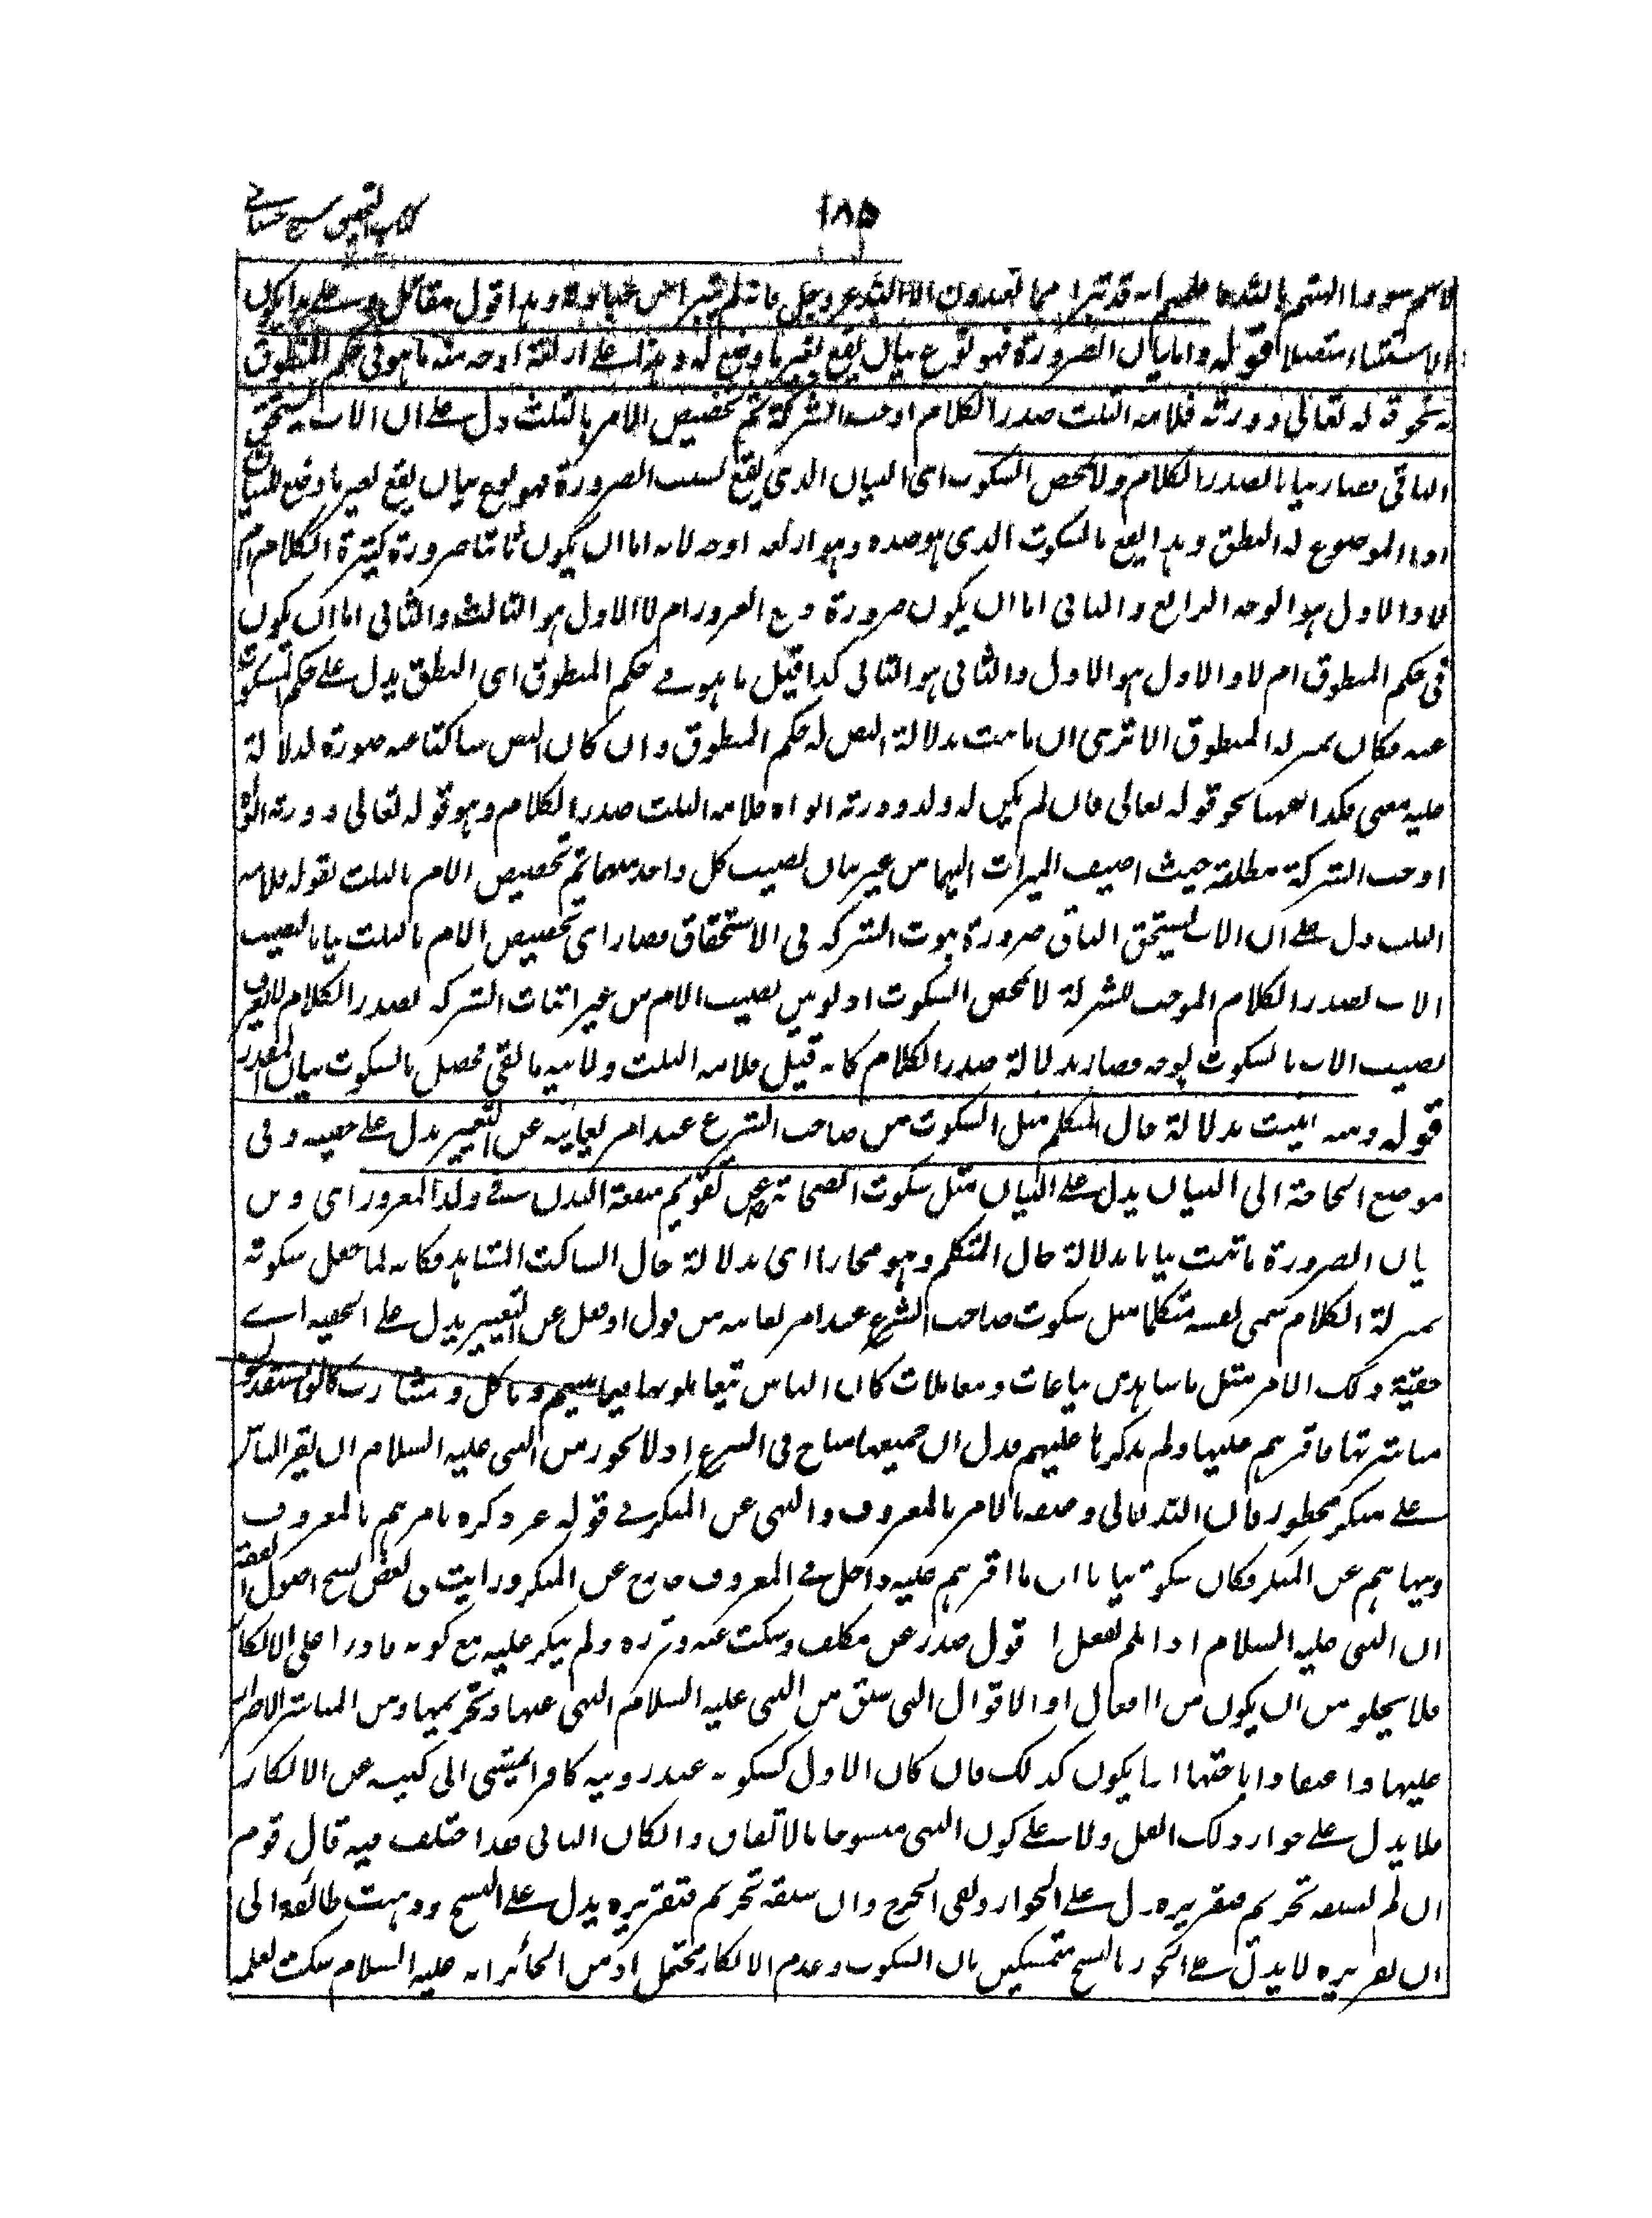 ١٨٥
كتاب التحقيق شرح حسامي
لانهم سووا الهتهم بالله فاعلمهم انه قد تبرا مما تعبدون الا الله عز وجل فانه لم يتبرا من عبادته وهذا قول مقاتل وعلى هذا يكون
الاستثناء متصلا قوله واما بيان الضرورة فهو نوع بيان يقع بغير ما وضع له وهذا على اربعة اوجه منه ما هو في حكم المنطوق
نحو قوله تعالى وورثه فلامه الثلث صدر الكلام اوجب الشركة ثم تخصيص الام بالثلث دل على ان الاب يستحق
الباقي فصار بيانا لصدر الكلام ولا لمحض السكوت اي البيان الذي يقع بسبب الضرورة فهو نوع بيان يقع بغير ما وضع للبيان
اذ الموضوع له النطق وهذا يقع بالسكوت الذي هو ضده وهو اربعة اوجه لانه اما ان يكون ثابتا ضرورة كثرة الكلام ام
لا والاول هو الوجه الرابع والثاني اما ان يكون ضرورة دفع الغرور ام لا الاول هو الثالث والثاني اما ان يكون
في حكم المنطوق ام لا والاول هو الاول والثاني هو الثاني كذا قيل ما هو في حكم المنطوق اي النطق يدل على حكم المسكوت
عنه فكان بمنزلة المنطوق الا ترى ان ما ثبت بدلالة النص له حكم المنطوق وان كان النص ساكتا عنه صورة لدلالة
عليه معنى فكذا ههنا نحو قوله تعالى فان لم يكن له ولد وورثه ابواه فلامه الثلث صدر الكلام وهو قوله تعالى وورثه ابواه
اوجب الشركة مطلقة حيث اضيف الميراث اليهما من غير بيان نصيب كل واحد منهما ثم تخصيص الام بالثلث بقوله فلامه
الثلث دل على ان الاب يستحق الباقي ضرورة ثبوت الشركة في الاستحقاق فصار اي تخصيص الام بالثلث بيانا لنصيب
الاب لصدر الكلام الموجب للشركة لا لمحض السكوت اذ لو بين نصيب الام من غير اثبات الشركة لصدر الكلام لا يعرف
نصيب الاب بالسكوت بوجه فصار بدلالة صدر الكلام كانه قيل فلامه الثلث ولابيه ما بقي فحصل بالسكوت بيان المقدر
قوله ومنه ما يثبت بدلالة حال المتكلم مثل السكوت من صاحب الشرع عند امر يعاينه عن التغيير يدل على حقيته وفي
موضع الحاجة الى البيان يدل على البيان مثل سكوت الصحابة رض عن تقويم منفعة البدن في ولد المغرور اي ومن
بيان الضرورة ما ثبت بيانا بدلالة حال المتكلم وهو مجاز اي بدلالة حال الساكت المشاهد فكانه لما جعل سكوته
بمنزلة الكلام سمى نفسه متكلما مثل سكوت صاحب الشرع عند امر يعاينه من قول او فعل عن التغيير يدل على الحقية اي
حقية ذلك الامر مثل ما شاهد من بياعات ومعاملات كان الناس يتعاملونها فيما بينهم وماكل ومشارب كانوا يستديمون
مباشرتها فاقرهم عليها ولم ينكرها عليهم فدل ان جميعها مباح في الشرع اذ لا يجوز من النبي عليه السلام ان يقر الناس
على منكر محظور فان الله تعالى وصفه بالامر بالمعروف والنهي عن المنكر في قوله عز ذكره يامرهم بالمعروف
وينهاهم عن المنكر فكان سكوته بيانا ان ما اقرهم عليه داخل في المعروف خارج عن المنكر ورايت في بعض نسخ اصول الفقه
ان النبي عليه السلام اذا علم بفعل او قول صدر عن مكلف وسكت عنه وقرره ولم ينكر عليه مع كونه قادرا على الانكار
فلا يخلو من ان يكون من الافعال او الاقوال التي سبق من النبي عليه السلام النهي عنها وتحريمها ومن المباشر الاصرار
عليها واعتقاد اباحتها او لا يكون كذلك فان كان الاول كسكوته عند رؤية كافر يمشي الى كنيسة عن الانكار
فلا يدل على جواز ذلك الفعل ولا على كون النهي منسوخا بالاتفاق وان كان الثاني فقد اختلف فيه قال قوم
ان لم يسبقه تحريم فتقريره دل على الجواز ونفي الحرج وان سبقه تحريم فتقريره يدل على النسخ وذهبت طائفة الى
ان تقريره لا يدل على الجواز والنسخ متمسكين بان السكوت وعدم الانكار محتمل اذ من الجائز انه عليه السلام سكت لعلمه